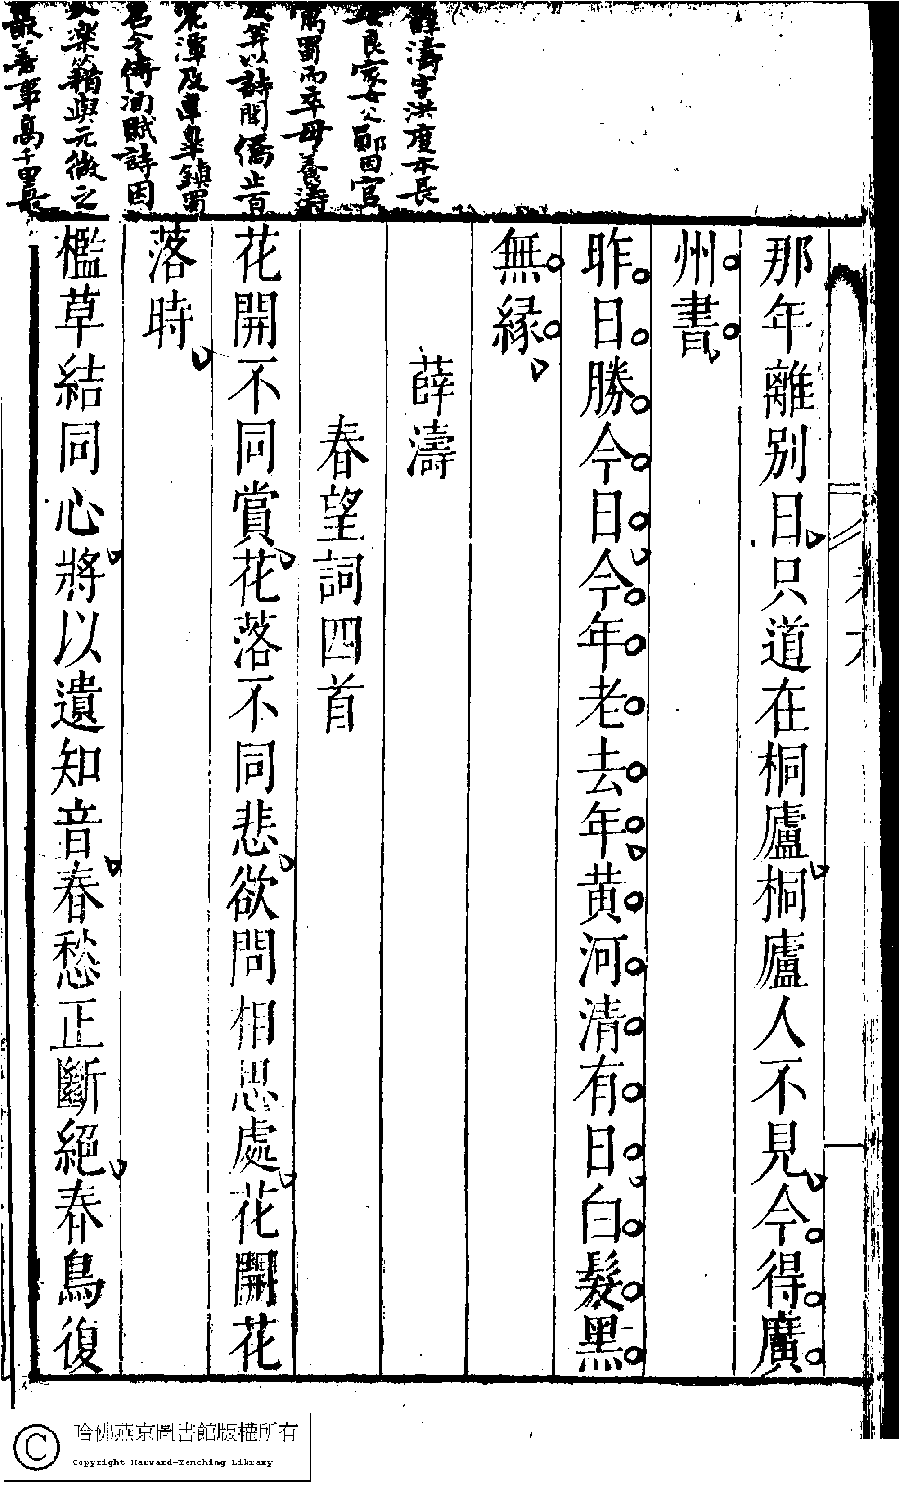 薛濤字洪度本長
安良家女父鄖因官
寓蜀而卒母養濤
及笄以詩聞僑止百
花潭及韋皐鎮蜀
召令侍酒賦詩因
入樂籍與元微之
最善高千里最
那年離別日只道在桐廬桐廬人不見今得廣
州書
昨日勝今日今年老去年黄河清有日白髮黑
無縁
薛濤
春望詞四首
花開不同賞花落不同悲欲問相思處花開花
落時
檻草結同心將以遺知音春愁正斷絕春鳥復
哈佛燕京圖書館版權所有
Copyright Harvard-Yenching Library